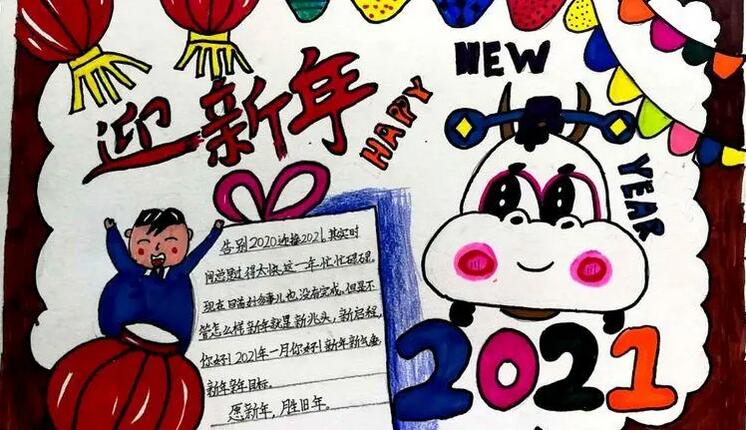 迎新年
HAPPY
NEW
YEAR
告别2020迎接2021.其实时
间总是过得太快.这一年忙忙碌碌.
现在回忘好多事儿也没有完成.但是不
管怎么样新年就是新兆头,新启程,
你好! 2021年一月你好! 新年新气象
新年新目标.
愿新年,胜旧年.
2021